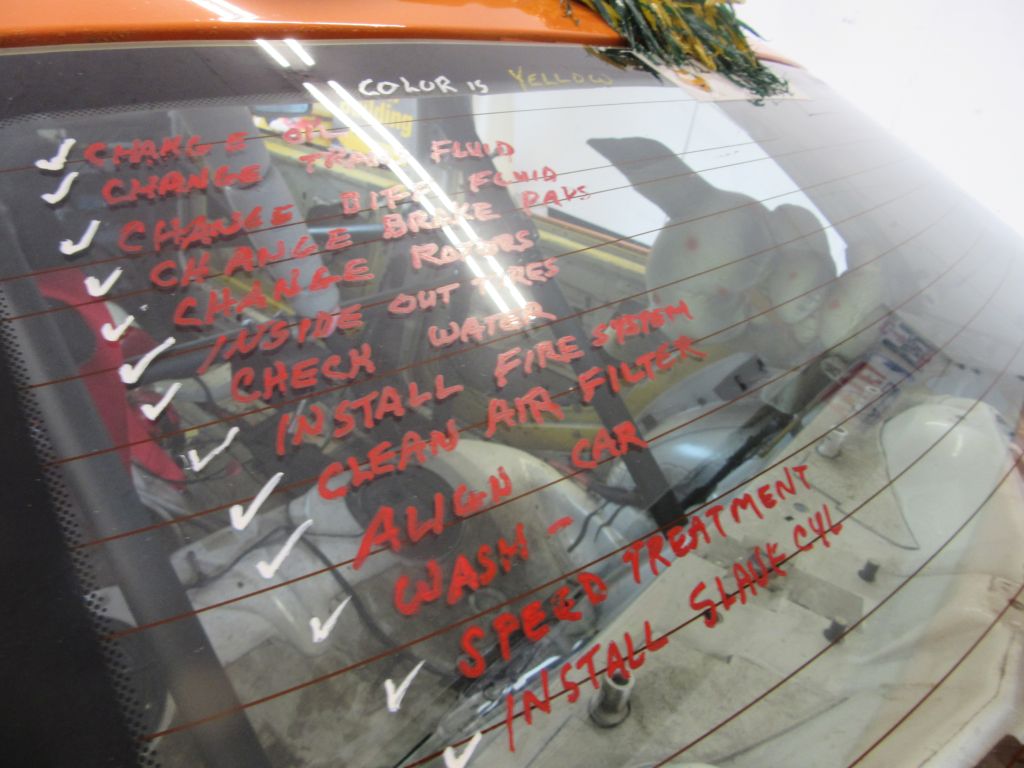 COLOR IS YELLOW
CHANGE OIL
CHANGE TRANS FLUID
CHANGE DIFF FLUID
CHANGE BRAKE PAKS
CHANGE ROTORS
INSIDE OUT TIRES
CHECK WATER
INSTALL FIRE SYSTEM
CLEAN AIR FILTER
ALIGN CAR
WASH -
SPEED TREATMENT
INSTALL SLAVE CYL